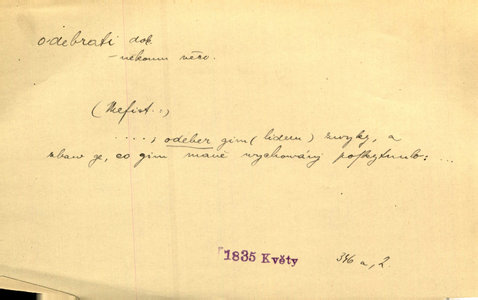 odebrati dok.
– někomu něco.
(Mefist.:)
...., odeber gim (lidem) zwyky, a
zbaw ge, co gim marné wychowáný poskytnulo: ...
1835 Květy 346 a, 2.